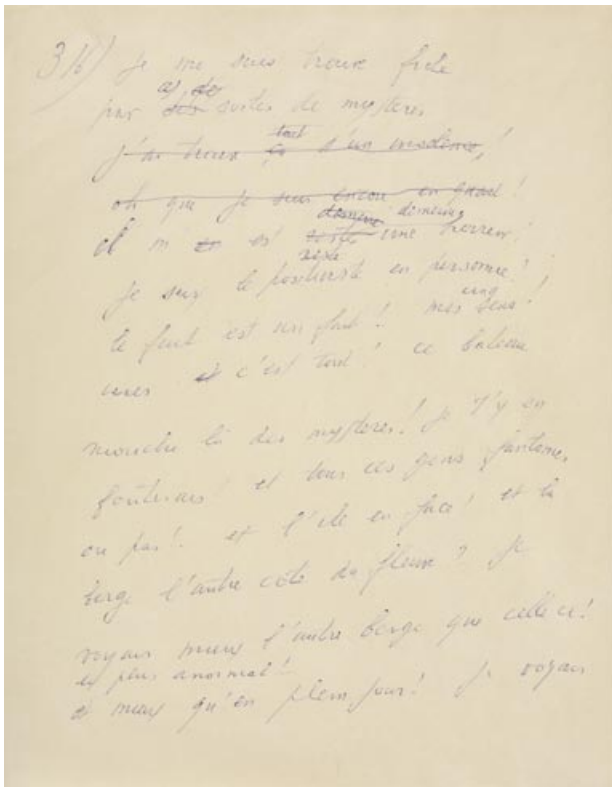 316) Je me suis trouvé
par ces sortes de mystères
j'ai trouvé tout d'un
oh que je suis encore en !
il m en est demeuré une horreur !
reste
Je suis le positiviste en personne !
le fait est un fait ! mes cinq sens !
et c'est tout ! ce bateau
mouche là des mystères ! je t'y en
foutrais ! et tous ces gens fantômes
ou pas !. et l'île en face ! et la
berge l'autre côté du fleuve ? Je
voyais mieux l'autre berge que celle ci !
et pas anormal !..
mieux qu'en plein jour ! je voyais